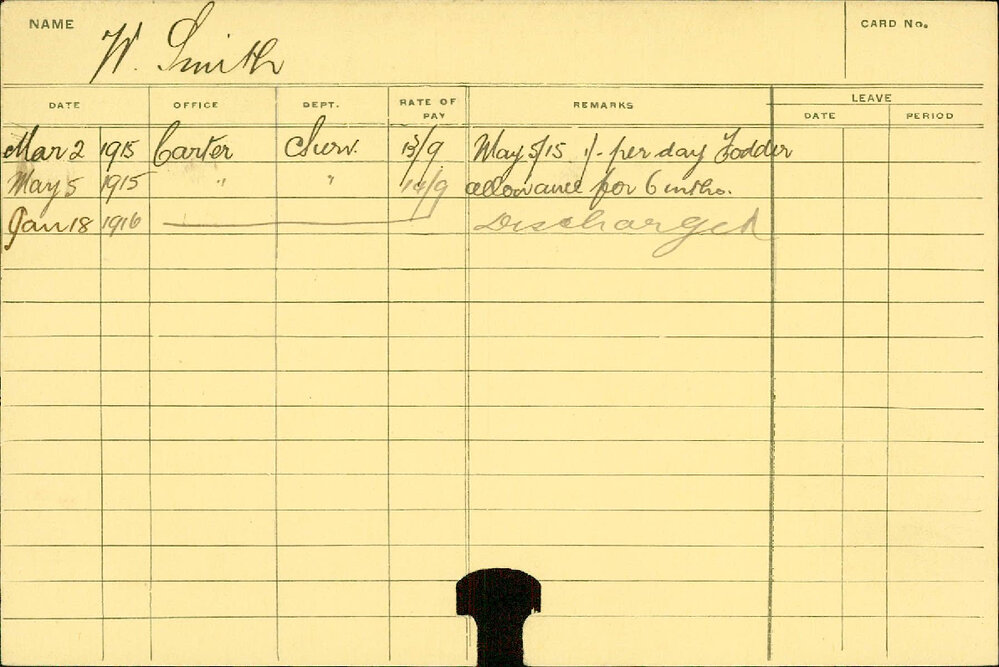 NAME W. Smith CARD No.
DATE OFFICE DEPT. RATE OF PAY REMARKS LEAVE
DATE PERIOD
Mar 2 1915 Carter Surv. 13/9 May 5/15 1/- per day Fodder
May 5 1915 " " 14/9 allowance for 6 mths.
Jan 18 1916 Discharged